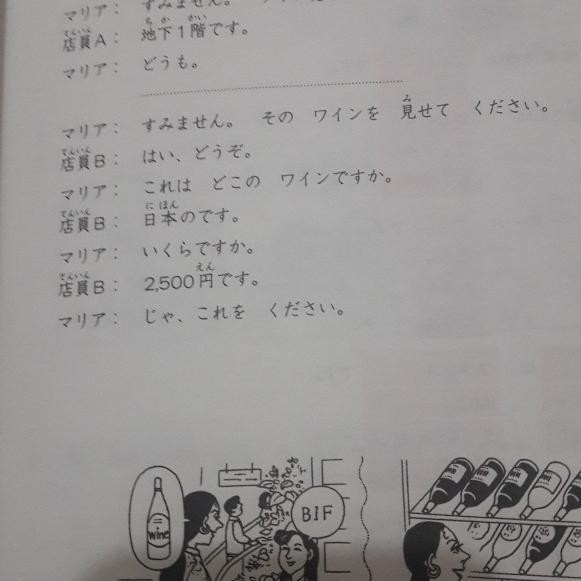 マリア： すみません。
店員A： 地下1階です。
マリア： どうも。
マリア： すみません。 その ワインを 見せて ください。
店員B： はい、どうぞ。
マリア： これは どこの ワインですか。
店員B： 日本のです。
マリア： いくらですか。
店員B： 2,500円です。
マリア： じゃ、これを ください。
wine
B1F